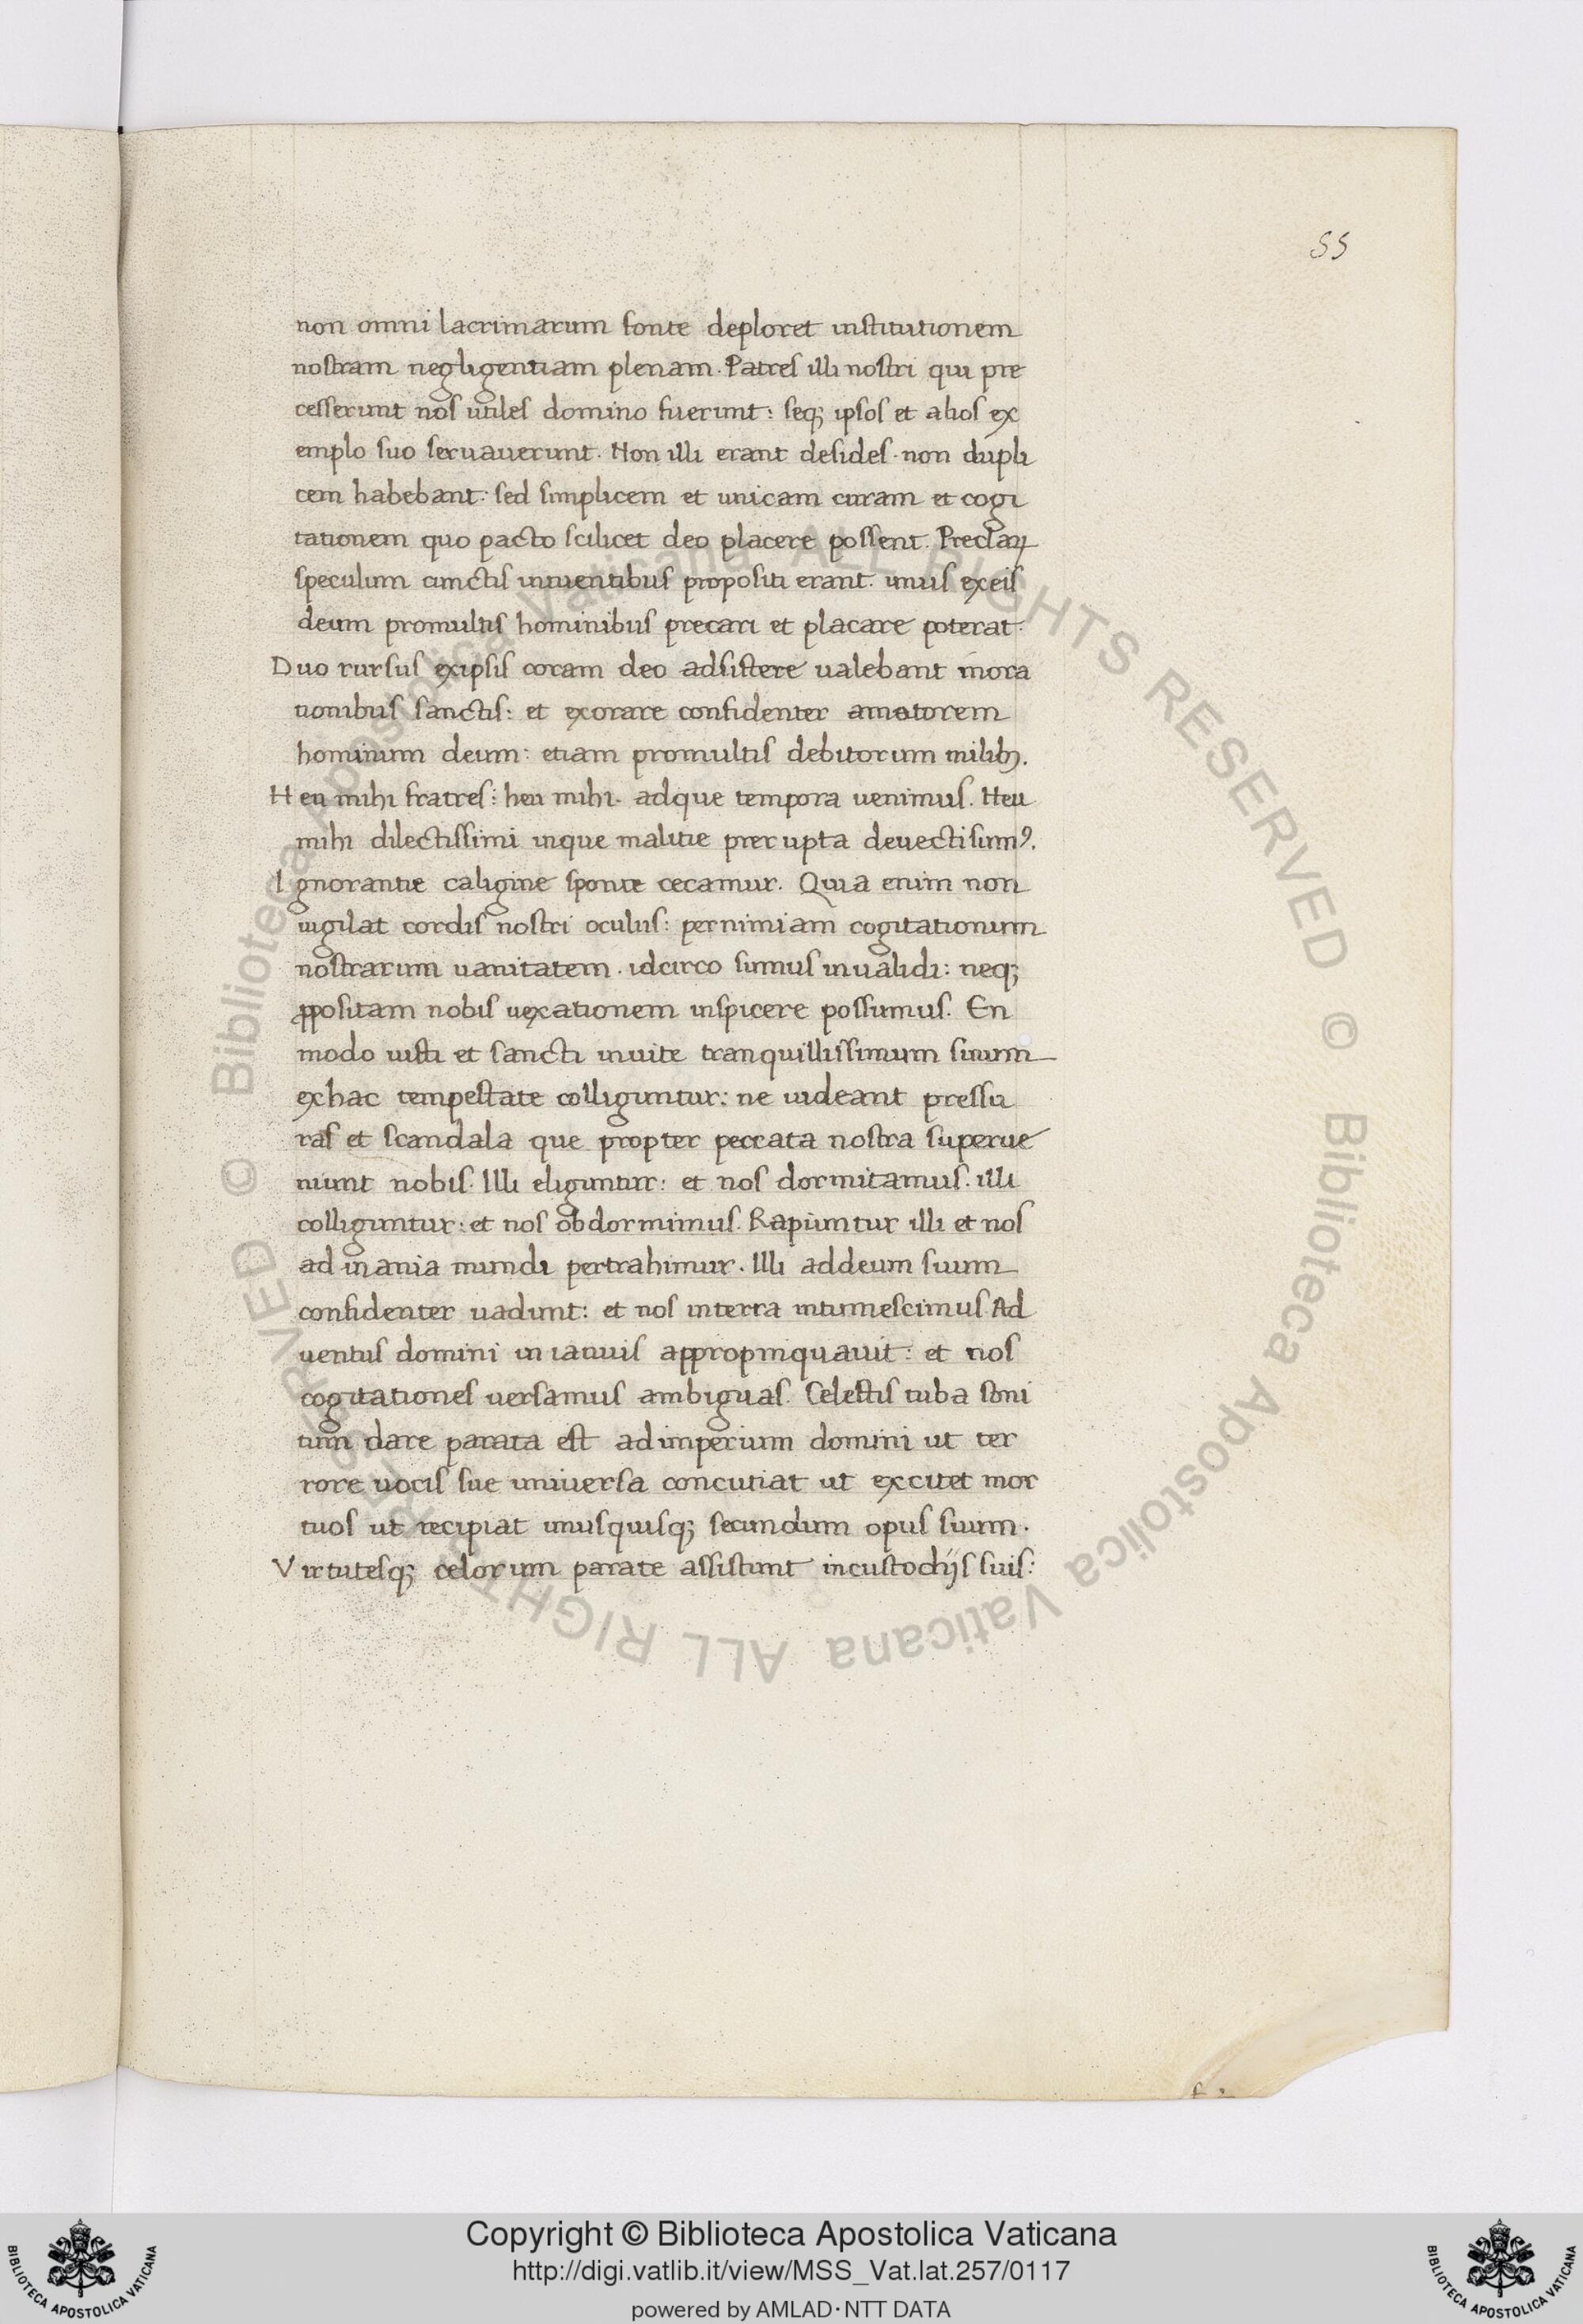 55
non omni lacrimarum fonte deploret institutionem
nostram negligentiam plenam. Patres illi nostri qui pre
cesserunt nos utiles domino fuerunt: seq; ipsos et alios ex
emplo suo seruauerunt. Non illi erant desides. non dupli
cem habebant: sed simplicem et unicam curam et cogi
tationem quo pacto scilicet deo placere possent. Preclarꝝ
speculum cunctis intuentibus propositi erant. unus exeis
deum promultis hominibus precari et placare poterat.
Duo rursus exipsis coram deo adsistere ualebant inora
tionibus sanctis: et exorare confidenter amatorem
hominum deum: etiam promultis debitorum milibꝫ.
Heu mihi fratres: heu mihi. adque tempora uenimus. Heu
mihi dilectissimi inque malitie prerupta deuectisumꝰ.
Ignorantie caligine sponte cecamur. Quia enim non
uigilat cordis nostri oculus: pernimiam cogitationum
nostrarum uanitatem. idcirco sumus inualidi: neq;
ꝓpositam nobis uexationem inspicere possumus. En
modo iusti et sancti inuite tranquillissimum sinum
exhac tempestate colliguntur: ne uideant pressu
ras et scandala que propter peccata nostra superue
niunt nobis. Illi eliguntur: et nos dormitamus. illi
colliguntur: et nos obdormimus. Rapiuntur illi et nos
ad inania mundi pertrahimur. Illi addeum suum
confidenter uadunt: et nos interra intumescimus. Ad
uentus domini in ianuis appropinquauit: et nos
cogitationes uersamus ambiguas. Celestis tuba soni
tum dare parata est adimperium domini ut ter
rore uocis sue uniuersa concutiat ut excitet mor
tuos ut recipiat unusquisq; secundum opus suum.
Virtutesq; celorum parate assistunt incustodijs suis:
© Biblioteca Apostolica Vaticana ALL RIGHTS RESERVED
© Biblioteca Apostolica Vaticana ALL RIGHTS RESERVED
Copyright © Biblioteca Apostolica Vaticana
http://digi.vatlib.it/view/MSS_Vat.lat.257/0117
powered by AMLAD·NTT DATA
BIBLIOTECA APOSTOLICA VATICANA
BIBLIOTECA APOSTOLICA VATICANA